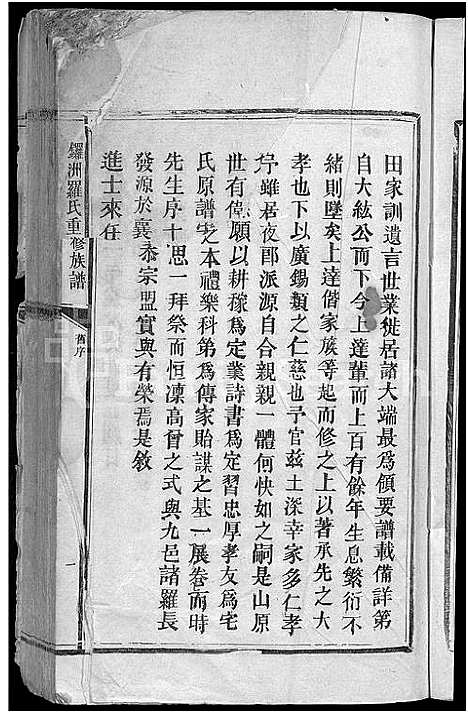 田家訓遺言世業徙居諸大端最為領要譜載備詳第
自大紘公而下今上達輩而上百有餘年生息繁衍不
緒則墜矣上達偕家族等起而修之上以著承先之大
孝也下以廣錫類之仁慈也予官兹土深幸家多仁孝
予雖居夜郎派源自合親親一體何快如之嗣是山原
世有偉願以耕稼為定業詩書為定習忠厚孝友為宅
氏原譜之本禮樂科第為傳家貽謀之基一展卷而時
先生序十思一拜祭而恒凜高曾之式與九邑諸羅長
發源於襄忝宗盟實與有榮焉是敘
進士來任
洲羅氏重修族譜
舊序
一